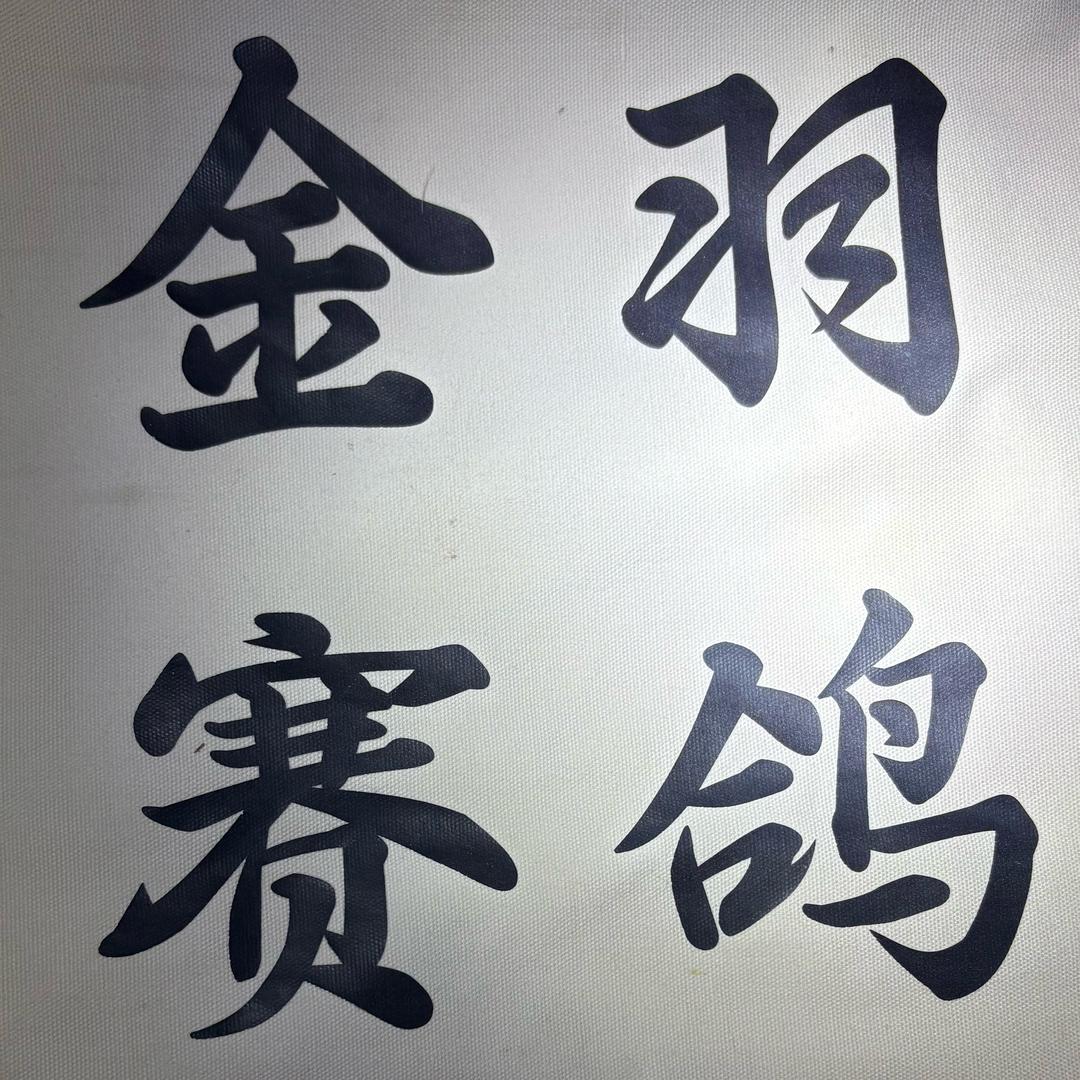 金羽
赛鸽